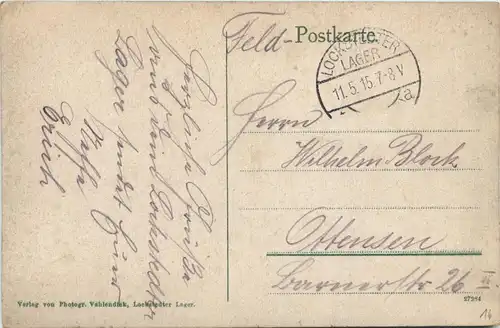 Feld-Postkarte.
LOCKSTEDTER
LAGER
11.5.15.7-8V
a
Herrn
Wilhelm Block
Ottensen
Barnerstr 26 III
Herzliche Grüße
aus dem Lockstedter
Lager sendet Euer
Neffe
Erich
Verlag von Photogr. Vahlendick, Lockstedter Lager.
27244
14